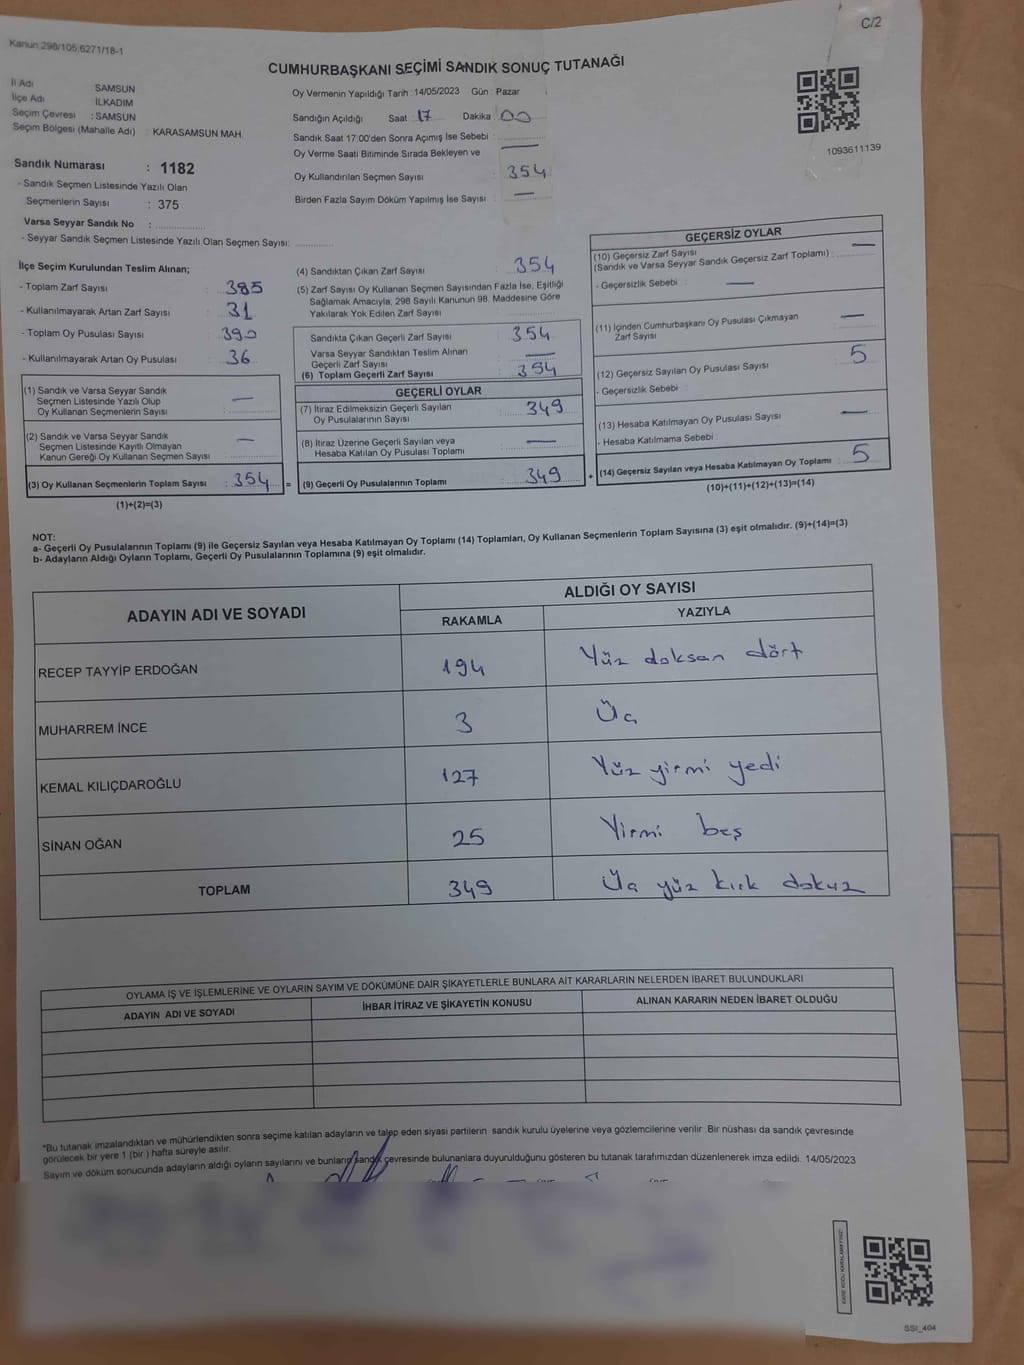 C/2
Kanun:298/105;6271/18-1
CUMHURBAŞKANI SEÇİMİ SANDIK SONUÇ TUTANAĞI
İl Adı SAMSUN
İlçe Adı İLKADIM
Seçim Çevresi : SAMSUN
Seçim Bölgesi (Mahalle Adı) : KARASAMSUN MAH.
Sandık Numarası : 1182
- Sandık Seçmen Listesinde Yazılı Olan
Seçmenlerin Sayısı : 375
Varsa Seyyar Sandık No :
- Seyyar Sandık Seçmen Listesinde Yazılı Olan Seçmen Sayısı:
Oy Vermenin Yapıldığı Tarih :14/05/2023 Gün : Pazar
Sandığın Açıldığı Saat 17 Dakika 00
Sandık Saat 17:00'den Sonra Açımış İse Sebebi :
Oy Verme Saati Bitiminde Sırada Bekleyen ve —
Oy Kullandırılan Seçmen Sayısı : 354
Birden Fazla Sayım Döküm Yapılmış İse Sayısı : —
1093611139
İlçe Seçim Kurulundan Teslim Alınan;
- Toplam Zarf Sayısı : 385
- Kullanılmayarak Artan Zarf Sayısı : 31
- Toplam Oy Pusulası Sayısı : 390
- Kullanılmayarak Artan Oy Pusulası : 36
(1) Sandık ve Varsa Seyyar Sandık
Seçmen Listesinde Yazılı Olup
Oy Kullanan Seçmenlerin Sayısı : —
(2) Sandık ve Varsa Seyyar Sandık
Seçmen Listesinde Kayıtlı Olmayan
Kanun Gereği Oy Kullanan Seçmen Sayısı : —
(3) Oy Kullanan Seçmenlerin Toplam Sayısı : 354 =
(1)+(2)=(3)
(4) Sandıktan Çıkan Zarf Sayısı : 354
(5) Zarf Sayısı Oy Kullanan Seçmen Sayısından Fazla İse, Eşitliği
Sağlamak Amacıyla; 298 Sayılı Kanunun 98. Maddesine Göre
Yakılarak Yok Edilen Zarf Sayısı :
Sandıkta Çıkan Geçerli Zarf Sayısı : 354
Varsa Seyyar Sandıktan Teslim Alınan
Geçerli Zarf Sayısı : —
(6) Toplam Geçerli Zarf Sayısı : 354
GEÇERLİ OYLAR
(7) İtiraz Edilmeksizin Geçerli Sayılan
Oy Pusulalarının Sayısı : 349
(8) İtiraz Üzerine Geçerli Sayılan veya
Hesaba Katılan Oy Pusulası Toplamı : —
(9) Geçerli Oy Pusulalarının Toplamı : 349 +
GEÇERSİZ OYLAR
(10) Geçersiz Zarf Sayısı
(Sandık ve Varsa Seyyar Sandık Geçersiz Zarf Toplamı) : —
- Geçersizlik Sebebi : —
(11) İçinden Cumhurbaşkanı Oy Pusulası Çıkmayan
Zarf Sayısı : —
(12) Geçersiz Sayılan Oy Pusulası Sayısı : 5
- Geçersizlik Sebebi :
(13) Hesaba Katılmayan Oy Pusulası Sayısı : —
- Hesaba Katılmama Sebebi :
(14) Geçersiz Sayılan veya Hesaba Katılmayan Oy Toplamı : 5
(10)+(11)+(12)+(13)=(14)
NOT:
a- Geçerli Oy Pusulalarının Toplamı (9) ile Geçersiz Sayılan veya Hesaba Katılmayan Oy Toplamı (14) Toplamları, Oy Kullanan Seçmenlerin Toplam Sayısına (3) eşit olmalıdır. (9)+(14)=(3)
b- Adayların Aldığı Oyların Toplamı, Geçerli Oy Pusulalarının Toplamına (9) eşit olmalıdır.
ADAYIN ADI VE SOYADI
ALDIĞI OY SAYISI
RAKAMLA YAZIYLA
RECEP TAYYİP ERDOĞAN 194 Yüz doksan dört
MUHARREM İNCE 3 Üç
KEMAL KILIÇDAROĞLU 127 Yüz yirmi yedi
SİNAN OĞAN 25 Yirmi beş
TOPLAM 349 Üç yüz kırk dokuz
OYLAMA İŞ VE İŞLEMLERİNE VE OYLARIN SAYIM VE DÖKÜMÜNE DAİR ŞİKAYETLERLE BUNLARA AİT KARARLARIN NELERDEN İBARET BULUNDUKLARI
ADAYIN ADI VE SOYADI İHBAR İTİRAZ VE ŞİKAYETİN KONUSU ALINAN KARARIN NEDEN İBARET OLDUĞU
*Bu tutanak imzalandıktan ve mühürlendikten sonra seçime katılan adayların ve talep eden siyasi partilerin sandık kurulu üyelerine veya gözlemcilerine verilir .Bir nüshası da sandık çevresinde
görülecek bir yere 1 (bir ) hafta süreyle asılır.
Sayım ve döküm sonucunda adayların aldığı oyların sayılarını ve bunların sandık çevresinde bulunanlara duyurulduğunu gösteren bu tutanak tarafımızdan düzenlenerek imza edildi. 14/05/2023
KARE KODU KARALAMAYINIZ!
SSI_404